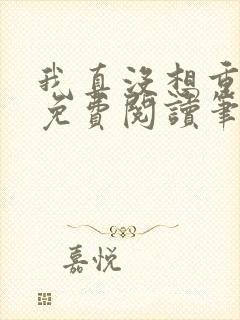 我真没想重
免费閱讀筆
嘉悦